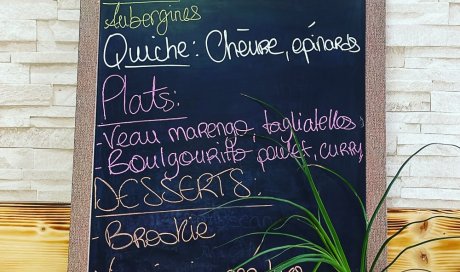 Aubergines
Quiche: Chèvre, épinards
Plats:
-Veau marengo, tagliatelles
Boulgouritto poulet, curry,
DESSERTS:
- Brookie